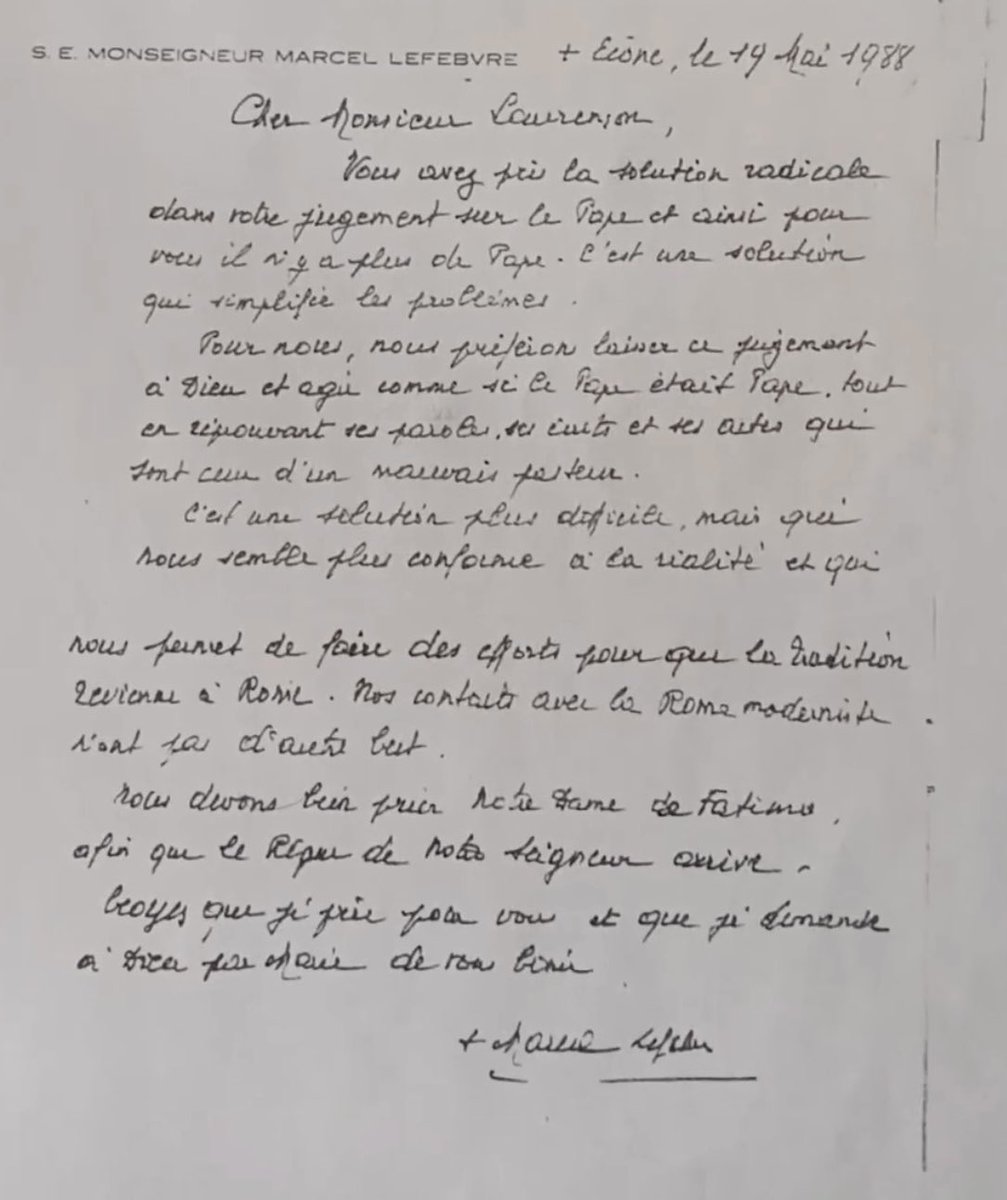 S. E. MONSEIGNEUR MARCEL LEFEBVRE + Ecône, le 19 Mai 1988
Cher Monsieur Laurençon,
Vous avez pris la solution radicale
dans votre jugement sur le Pape et ainsi pour
vous il n'y a plus de Pape. C'est une solution
qui simplifie les problèmes.
Pour nous, nous préférons laisser ce jugement
à Dieu et agir comme si le Pape était Pape, tout
en réprouvant ses paroles, ses écrits et ses actes qui
sont ceux d'un mauvais pasteur.
C'est une solution plus difficile, mais qui
nous semble plus conforme à la réalité et qui
nous permet de faire des efforts pour que la Tradition
revienne à Rome. Nos contacts avec la Rome moderniste
n'ont pas d'autre but.
Nous devons bien prier Notre Dame de Fatima,
afin que le Règne de Notre Seigneur arrive.
Croyez que je prie pour vous et que je demande
à Dieu par Marie de vous bénir
+ Marcel Lefebvre